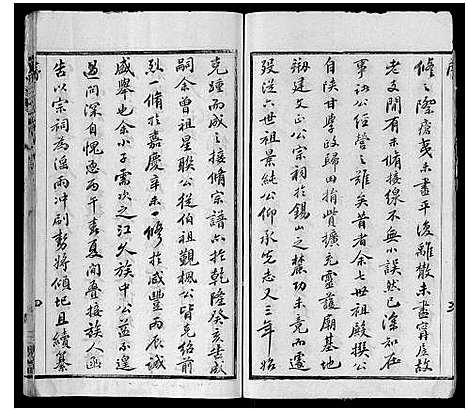 修之際瘡夷未盡平復離散未盡寧居故
老支間有未脩接線不無小誤然已深知在
事諸公經營之難矣昔者余七世祖殿撰公
自陝甘學政歸田捐貲擴充靈護廟基地
剏建文正公宗祠於錫山之麓功未竟而靈
殁從六世祖景純公仰承先志又三年始
克踵而成之接脩宗譜亦於乾隆癸亥告成
嗣余曾祖星聯公從伯祖觀楓公皆克紹前
烈一脩於嘉慶辛未一修於咸豐丙辰誠
盛舉也余小子需次之江久族中公益不遑
過問深自愧恧丙午春夏間疊接族人函
告以宗祠為淫雨冲刷勢將傾圮且續纂
四